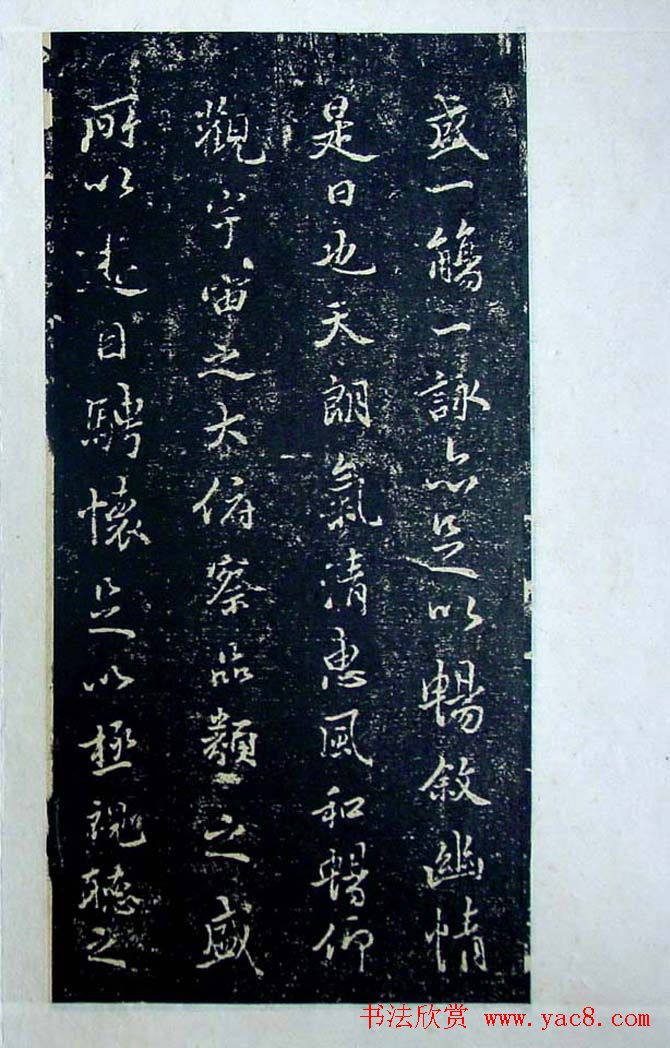 盛一觴一詠亦足以暢敘幽情
是日也天朗氣清惠風和暢仰
觀宇宙之大俯察品類之盛
所以遊目騁懷足以極視聽之
书法欣赏 www.yac8.com